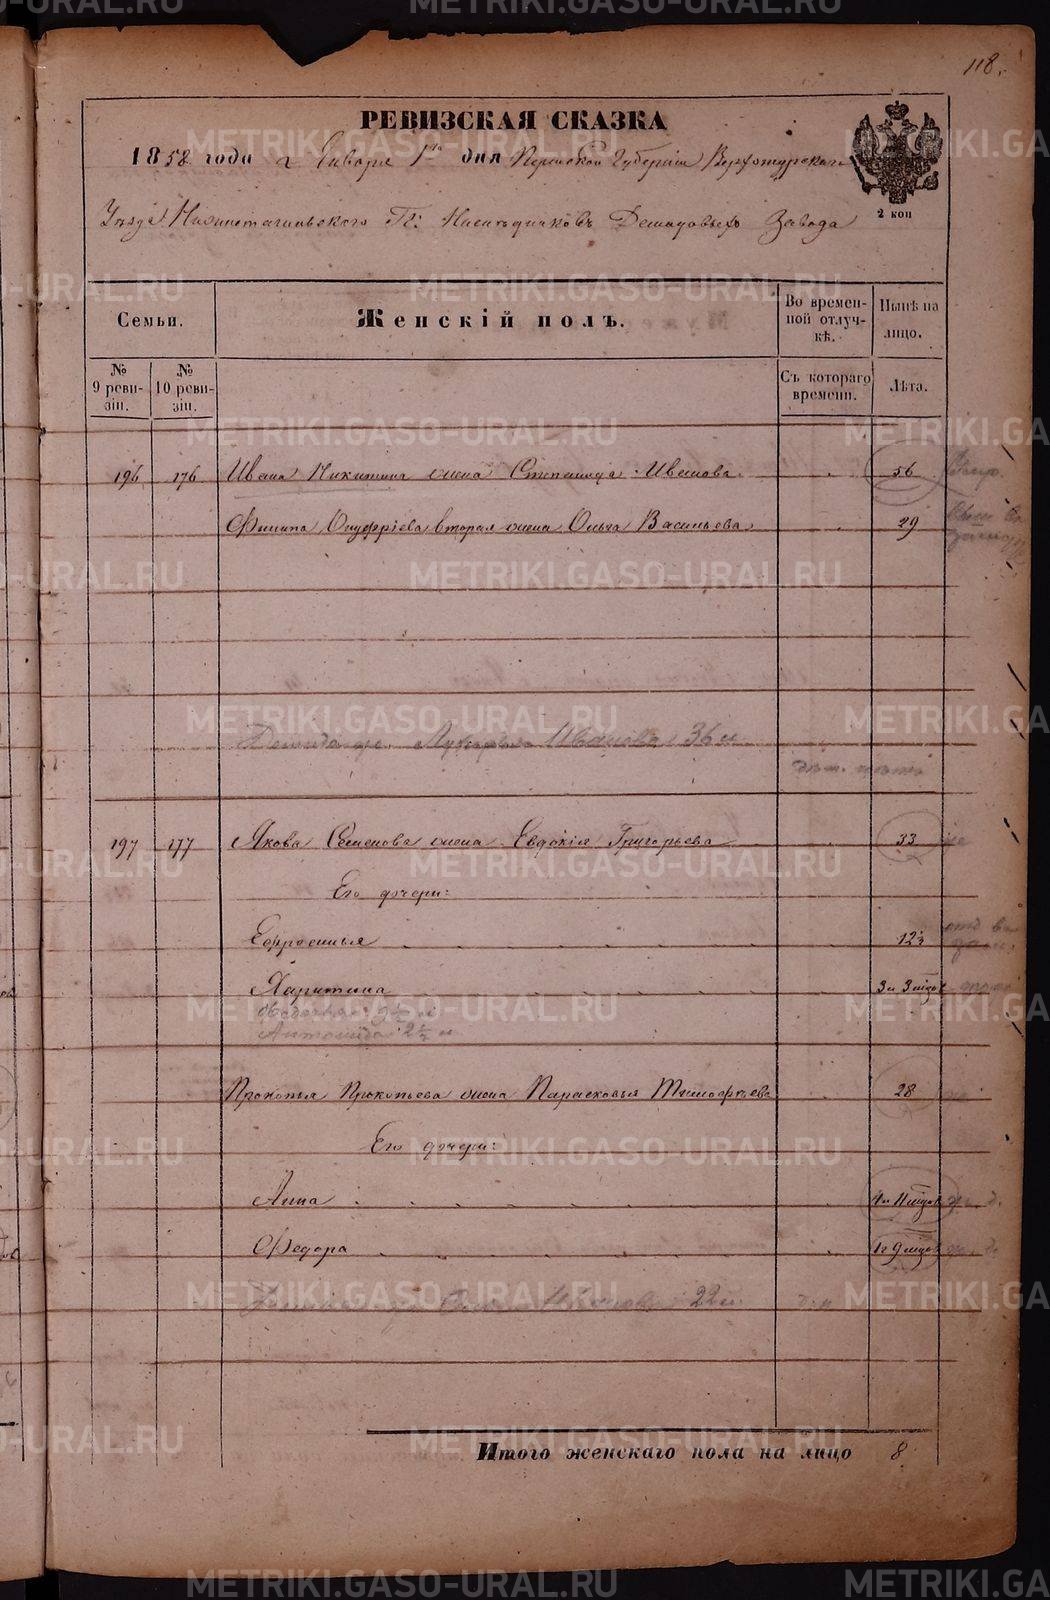 118.
РЕВИЗСКАЯ СКАЗКА
1858 года Января 1го дня Пермской Губернiи Верхотурскаго
Уѣзда Нижнетагильскаго Гг: Наслѣдниковъ Демидовыхъ Завода
2 коп
Семьи.
Женскiй полъ.
Во времен-
ной отлуч-
кѣ.
Нынѣ на
лицо.
№
9 реви-
зiи.
№
10 реви-
зiи.
Съ котораго
времени.
Лѣта.
196 176 Ивана Никитина жена Степанида Иванова 56
Филипа Онуфрiева вторая жена Ольга Васильева 29
Иванова 36
197 177 Якова Семенова жена Евдокiя Григорьева 33
Его дочери:
Ефросинья 12½
Харитина 3 и 3 мѣсяц
Антонида 2½
Прокопья Прокопьева жена Парасковья Тимофѣева 28
Его дочери:
Анна 11 мѣсяц
Федора 9 мѣсяц
22
Итого женскаго пола на лицо 8
METRIKI.GASO-URAL.RU